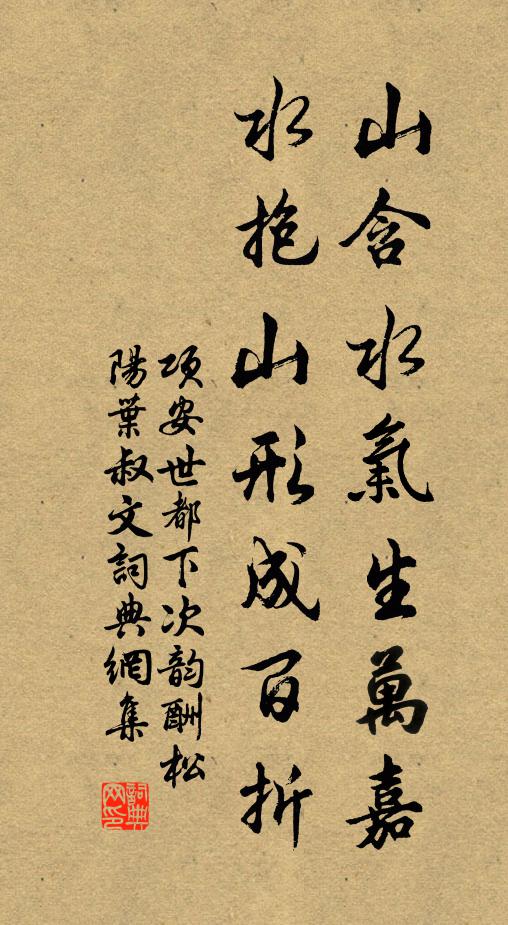 山含水氣生萬嘉
水抱山形成百折
項安世都下次韵酬松
陽葉叔文詞典網集
詞典网印